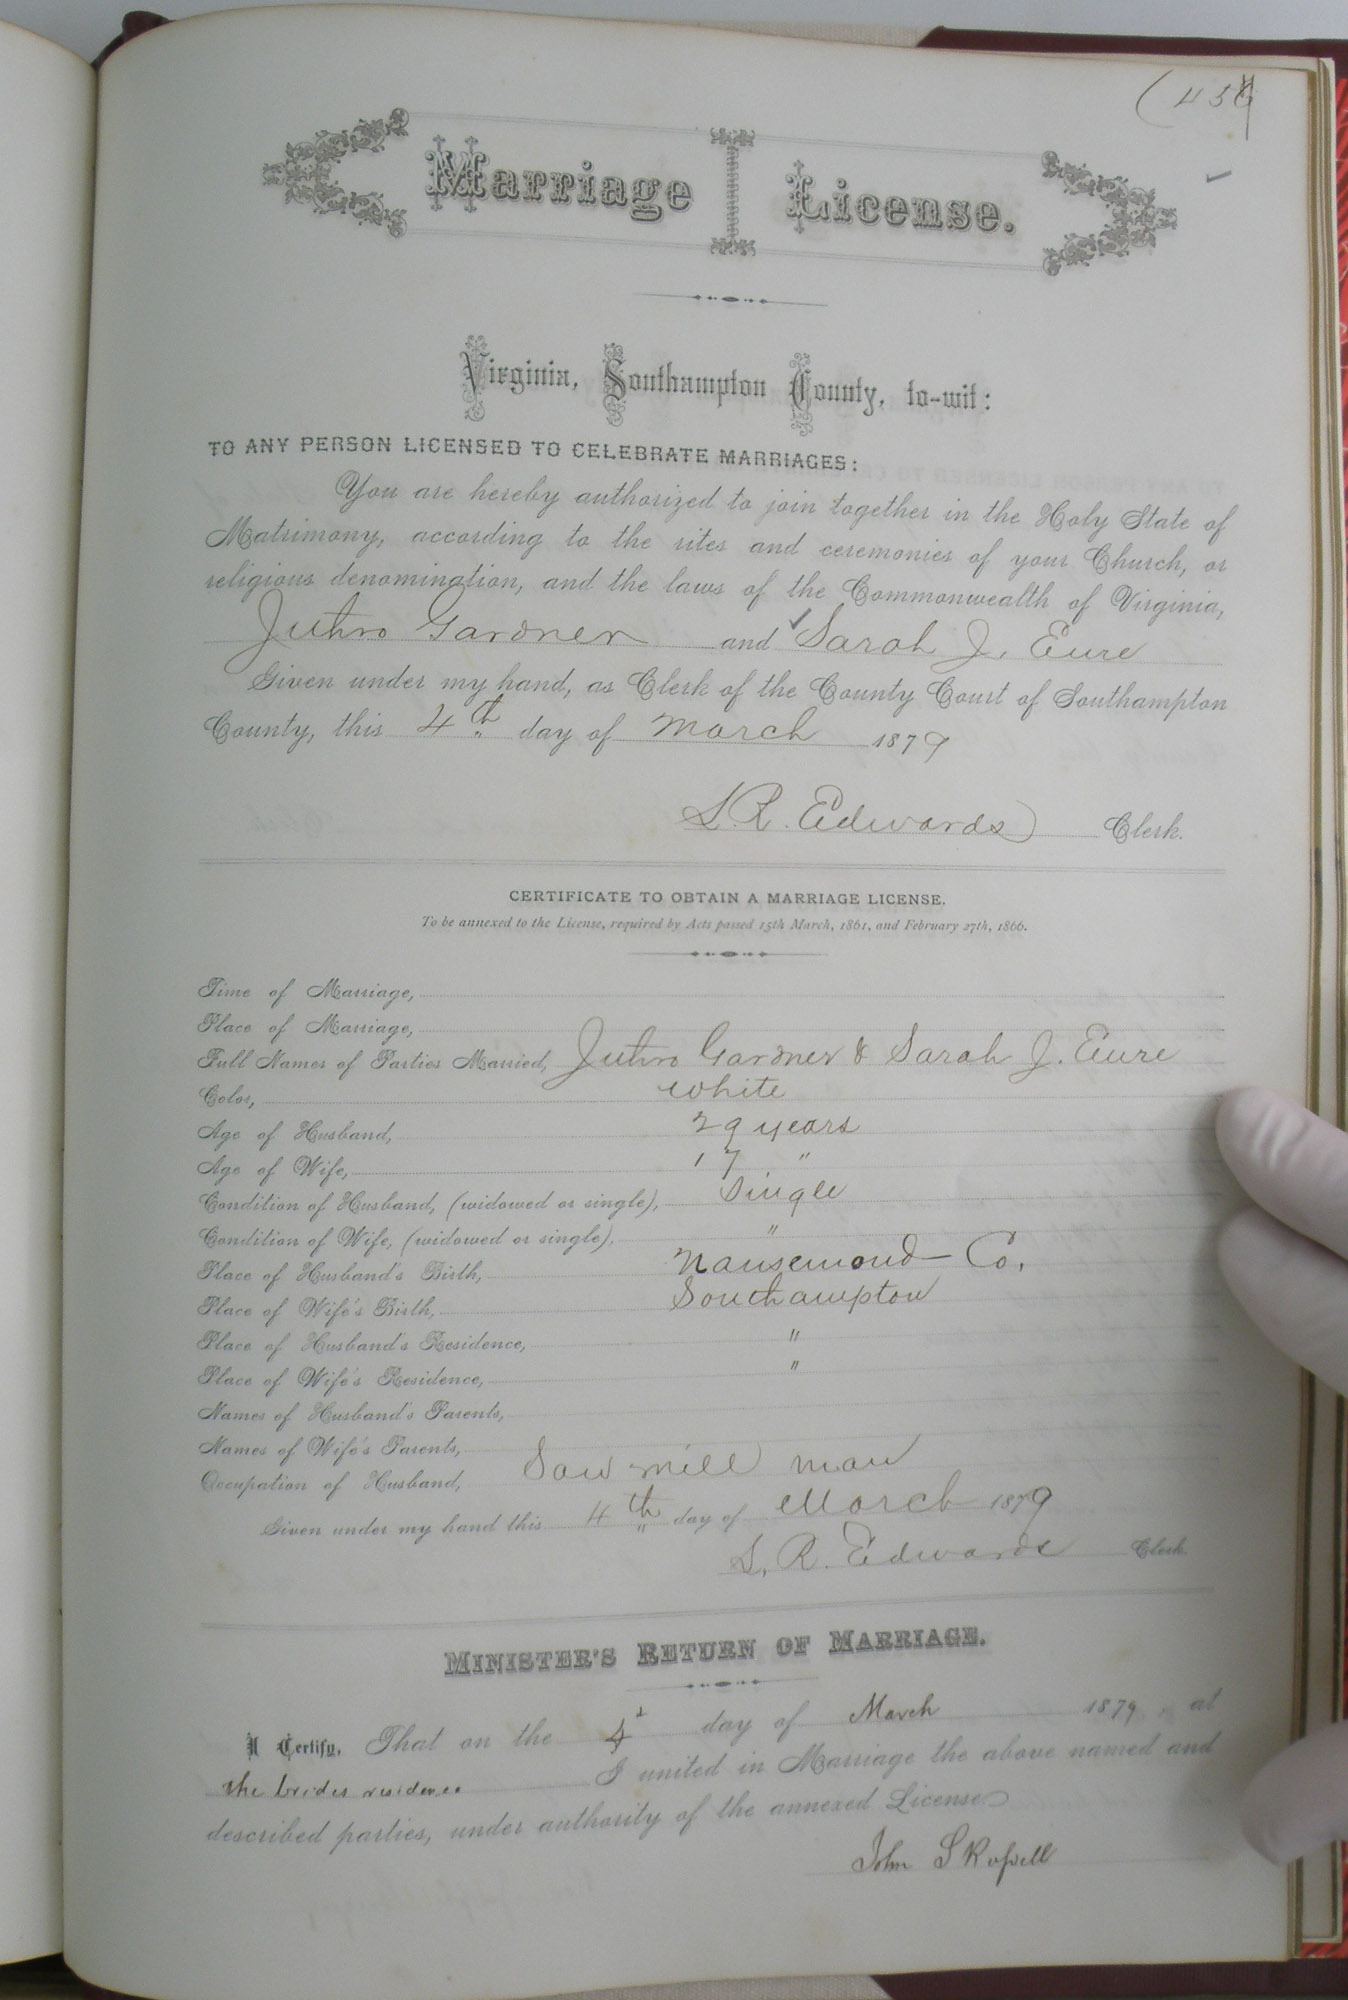 Marriage License.
Virginia, Southampton County, to-wit:
TO ANY PERSON LICENSED TO CELEBRATE MARRIAGES:
You are hereby authorized to join together in the Holy State of
Matrimony, according to the rites and ceremonies of your Church, or
religious denomination, and the laws of the Commonwealth of Virginia,
Gardner and Sarah J. Eure
Given under my hand, as Clerk of the County Court of Southampton
County, this 4th day of March 1879
L. R. Edwards Clerk.
CERTIFICATE TO OBTAIN A MARRIAGE LICENSE.
To be annexed to the License, required by Acts passed 15th March, 1861, and February 27th, 1866.
Time of Marriage,
Place of Marriage,
Full Names of Parties Married, Gardner & Sarah J. Eure
Color, white
Age of Husband, 29 years
Age of Wife, 17 "
Condition of Husband, (widowed or single), Single
Condition of Wife, (widowed or single), "
Place of Husband's Birth, Nansemond Co.
Place of Wife's Birth, Southampton
Place of Husband's Residence, "
Place of Wife's Residence, "
Names of Husband's Parents,
Names of Wife's Parents,
Occupation of Husband, Saw mill man
Given under my hand this 4th day of March 1879
L. R. Edwards Clerk.
MINISTER'S RETURN OF MARRIAGE.
I Certify, That on the 4 day of March 1879, at
the brides residence I united in Marriage the above named and
described parties, under authority of the annexed License
John S